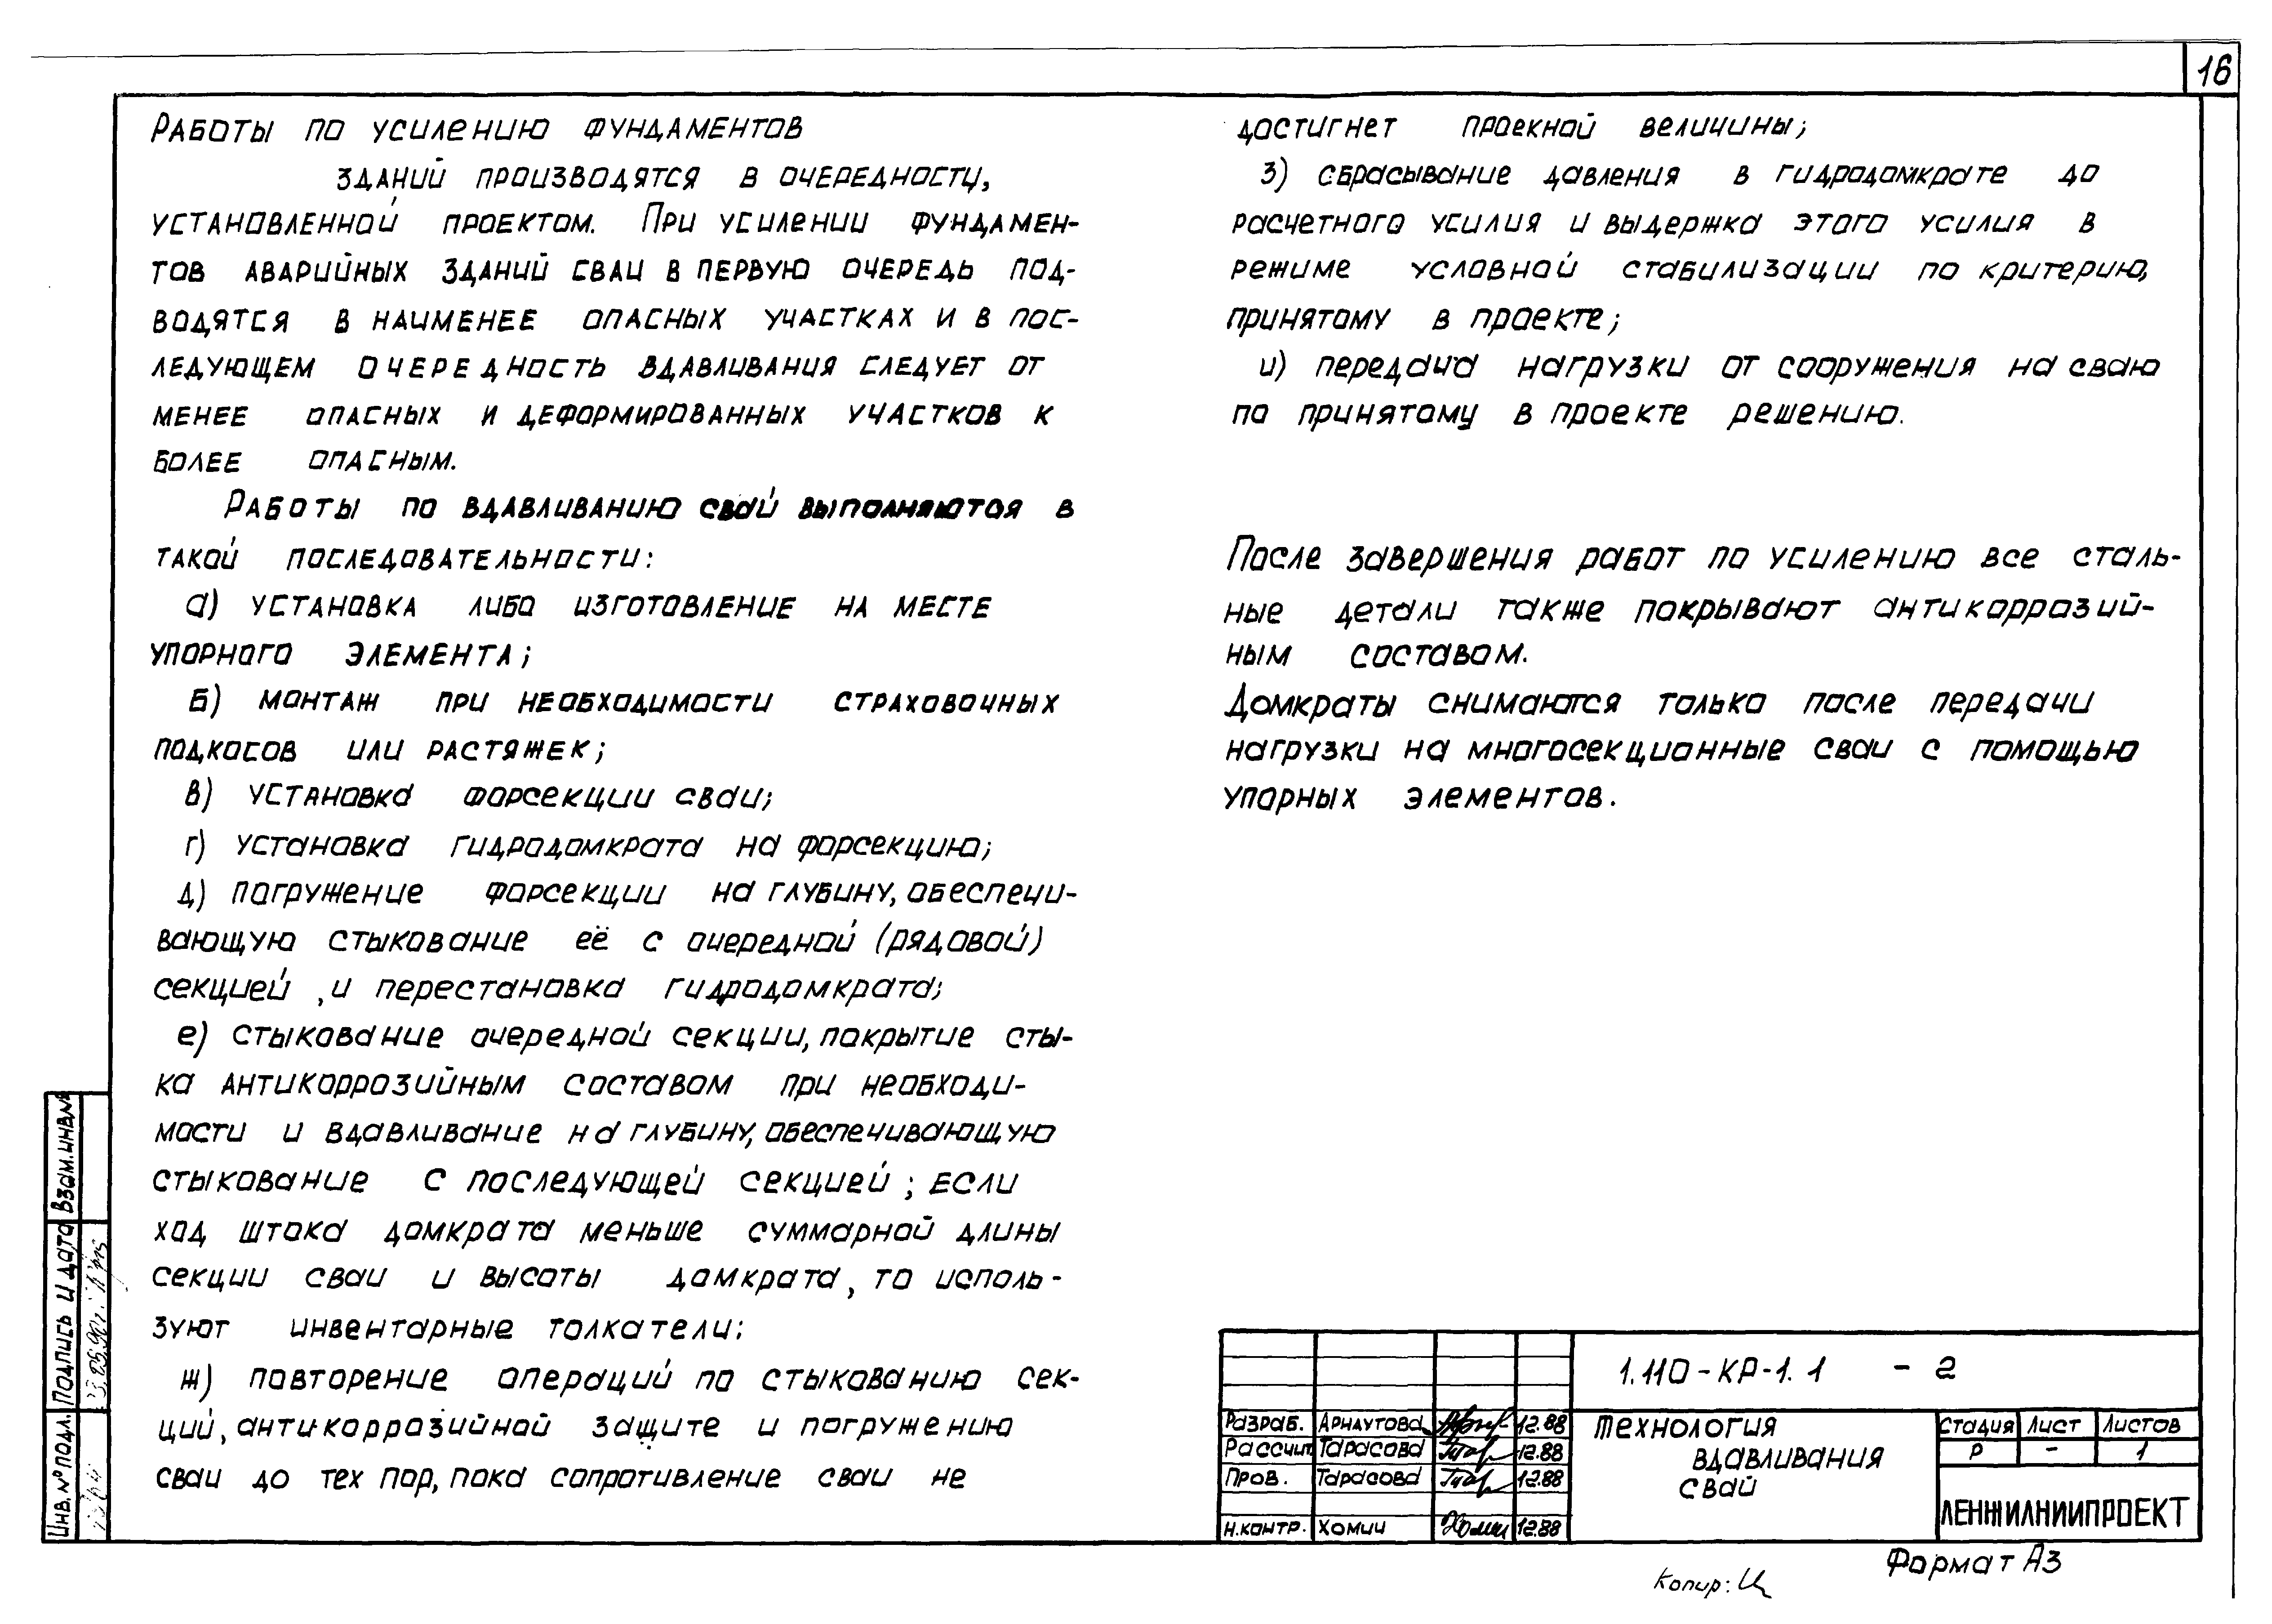 16
Работы по усилению фундаментов
зданий производятся в очередности,
установленной проектом. При усилении фундамен-
тов аварийных зданий сваи в первую очередь под-
водятся в наименее опасных участках и в пос-
ледующем очередность вдавливания следует от
менее опасных и деформированных участков к
более опасным.
Работы по вдавливанию свай выполняются в
такой последовательности:
а) установка либо изготовление на месте
упорного элемента;
б) монтаж при необходимости страховочных
подкосов или растяжек;
в) установка форсекции сваи;
г) установка гидродомкрата на форсекцию;
д) погружение форсекции на глубину, обеспечи-
вающую стыкование её с очередной (рядовой)
секцией, и перестановка гидродомкрата;
е) стыкование очередной секции, покрытие сты-
ка антикоррозийным составом при необходи-
мости и вдавливание на глубину, обеспечивающую
стыкование с последующей секцией; если
ход штока домкрата меньше суммарной длины
секции сваи и высоты домкрата, то исполь-
зуют инвентарные толкатели;
ж) повторение операций по стыкованию сек-
ций, антикоррозийной защите и погружению
сваи до тех пор, пока сопротивление сваи не
достигнет проекной величины;
з) сбрасывание давления в гидродомкрате до
расчетного усилия и выдержка этого усилия в
режиме условной стабилизации по критерию,
принятому в проекте;
и) передача нагрузки от сооружения на сваю
по принятому в проекте решению.
После завершения работ по усилению все сталь-
ные детали также покрывают антикоррозий-
ным составом.
Домкраты снимаются только после передачи
нагрузки на многосекционные сваи с помощью
упорных элементов.
1.110-КР-1.1 - 2
Разраб. Арнаутова 12.88
Рассчит Тарасова 12.88
Пров. Тарасова 12.88
Н.контр. Хомич 12.88
Технология
вдавливания
свай
Стадия Лист Листов
Р - 1
ЛЕНЖИЛНИИПРОЕКТ
Формат А3
Копир:
Взам.инв.№
Подпись и дата
Инв.№ подл.